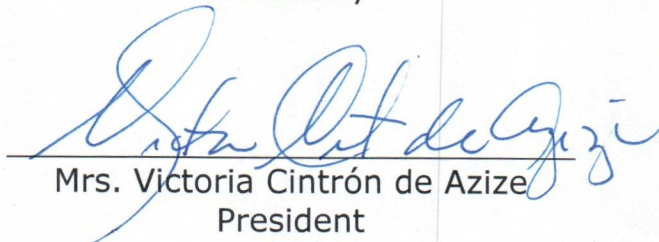 Victor Cint de Azize
Mrs. Victoria Cintrón de Azize
President